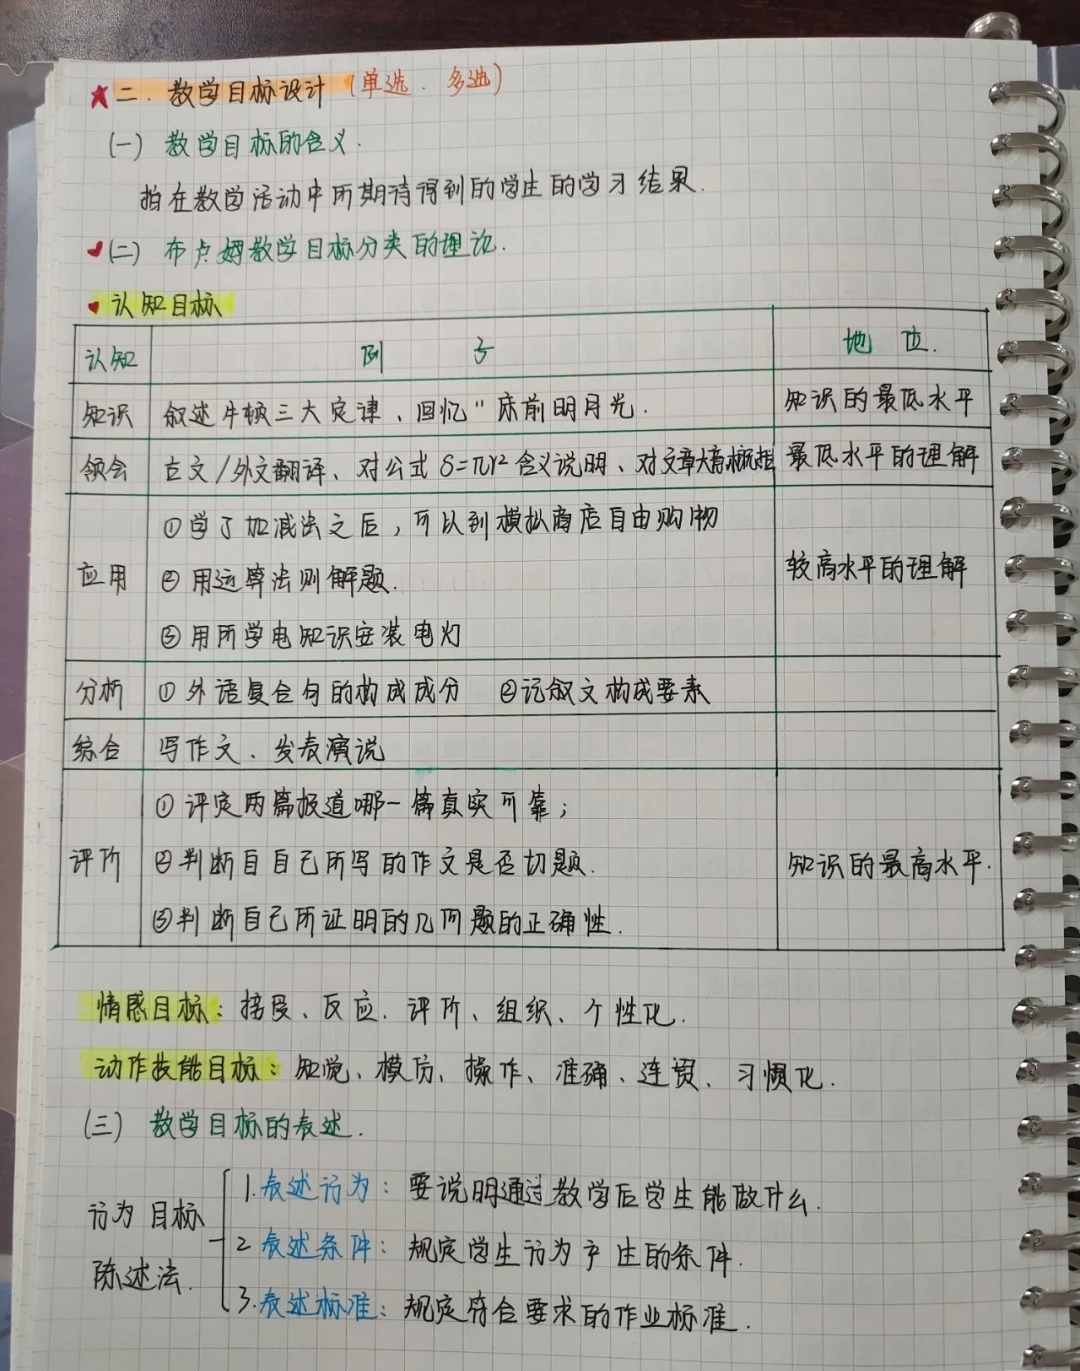 二.教学目标设计(单选.多选)
(一)教学目标的含义.
指在教学活动中所期待得到的学生的学习结果.
(二)布卢姆教学目标分类的理论.
认知目标
认知 例子 地位.
知识 叙述牛顿三大定律、回忆"床前明月光. 知识的最低水平
领会 古文/外文翻译、对公式S=πr²含义说明、对文章大意概括 最低水平的理解
应用 ①学了加减法之后,可以到模拟商店自由购物 较高水平的理解
②用运算法则解题.
③用所学电知识安装电灯
分析 ①外语复合句的构成成分 ②记叙文构成要素
综合 写作文、发表演说
评价 ①评定两篇报道哪一篇真实可靠;
②判断自自己所写的作文是否切题. 知识的最高水平.
③判断自己所证明的几何题的正确性.
情感目标:接受、反应.评价、组织、个性化.
动作技能目标:知觉、模仿、操作、准确、连贯、习惯化.
(三)教学目标的表述.
行为目标陈述法.
1.表述行为:要说明通过教学后学生能做什么.
2表述条件:规定学生行为产生的条件.
3.表述标准:规定符合要求的作业标准.